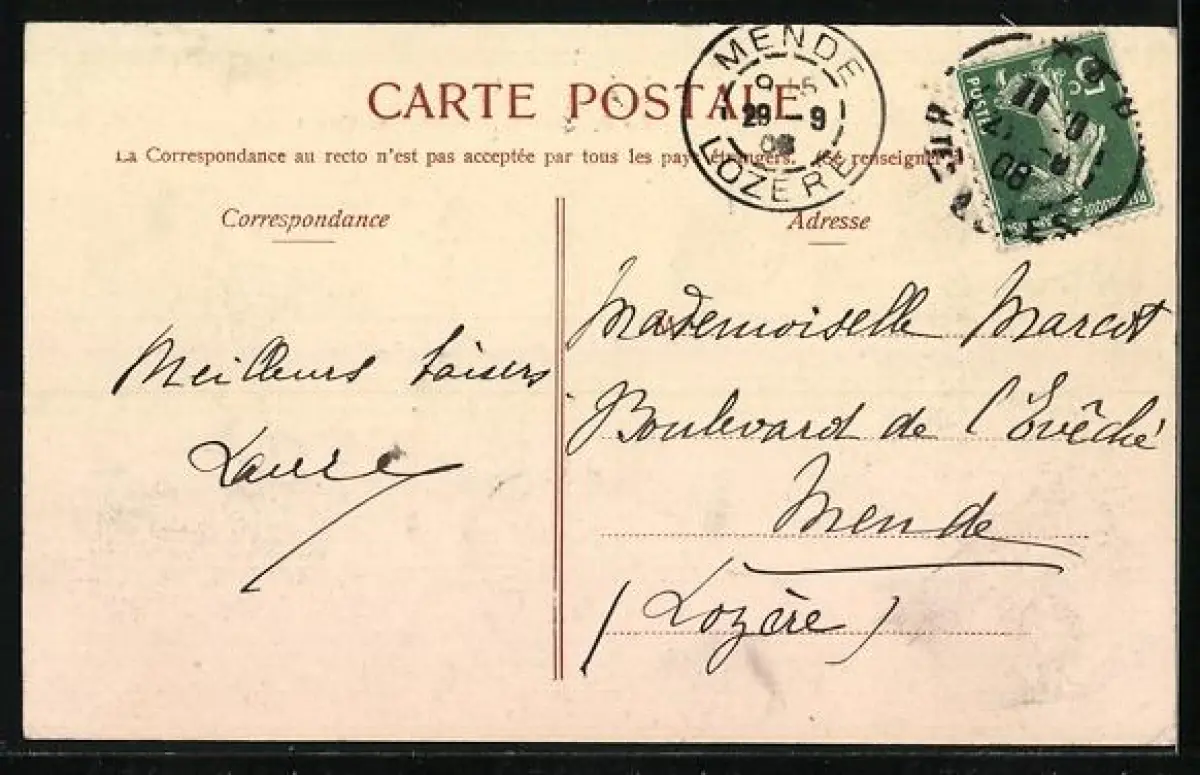 CARTE POSTALE
La Correspondance au recto n'est pas acceptée par tous les pays étrangers. (Se renseigner
MENDE
9 15
29 - 9
08
LOZÈRE
5
POSTE
Correspondance
Adresse
Meilleurs baisers
Laure
Mademoiselle Marcot
Boulevard de l'Evêché
Mende
(Lozère)